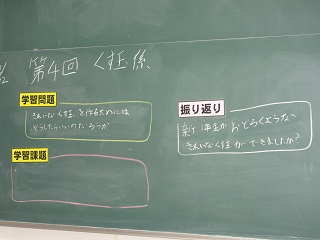 第4回 くす玉係
学習問題
きれいなくす玉を作るためには
どうしたらいいのだろうか
学習課題
振り返り
新1年生がおどろくような
きれいなくす玉ができましたか?